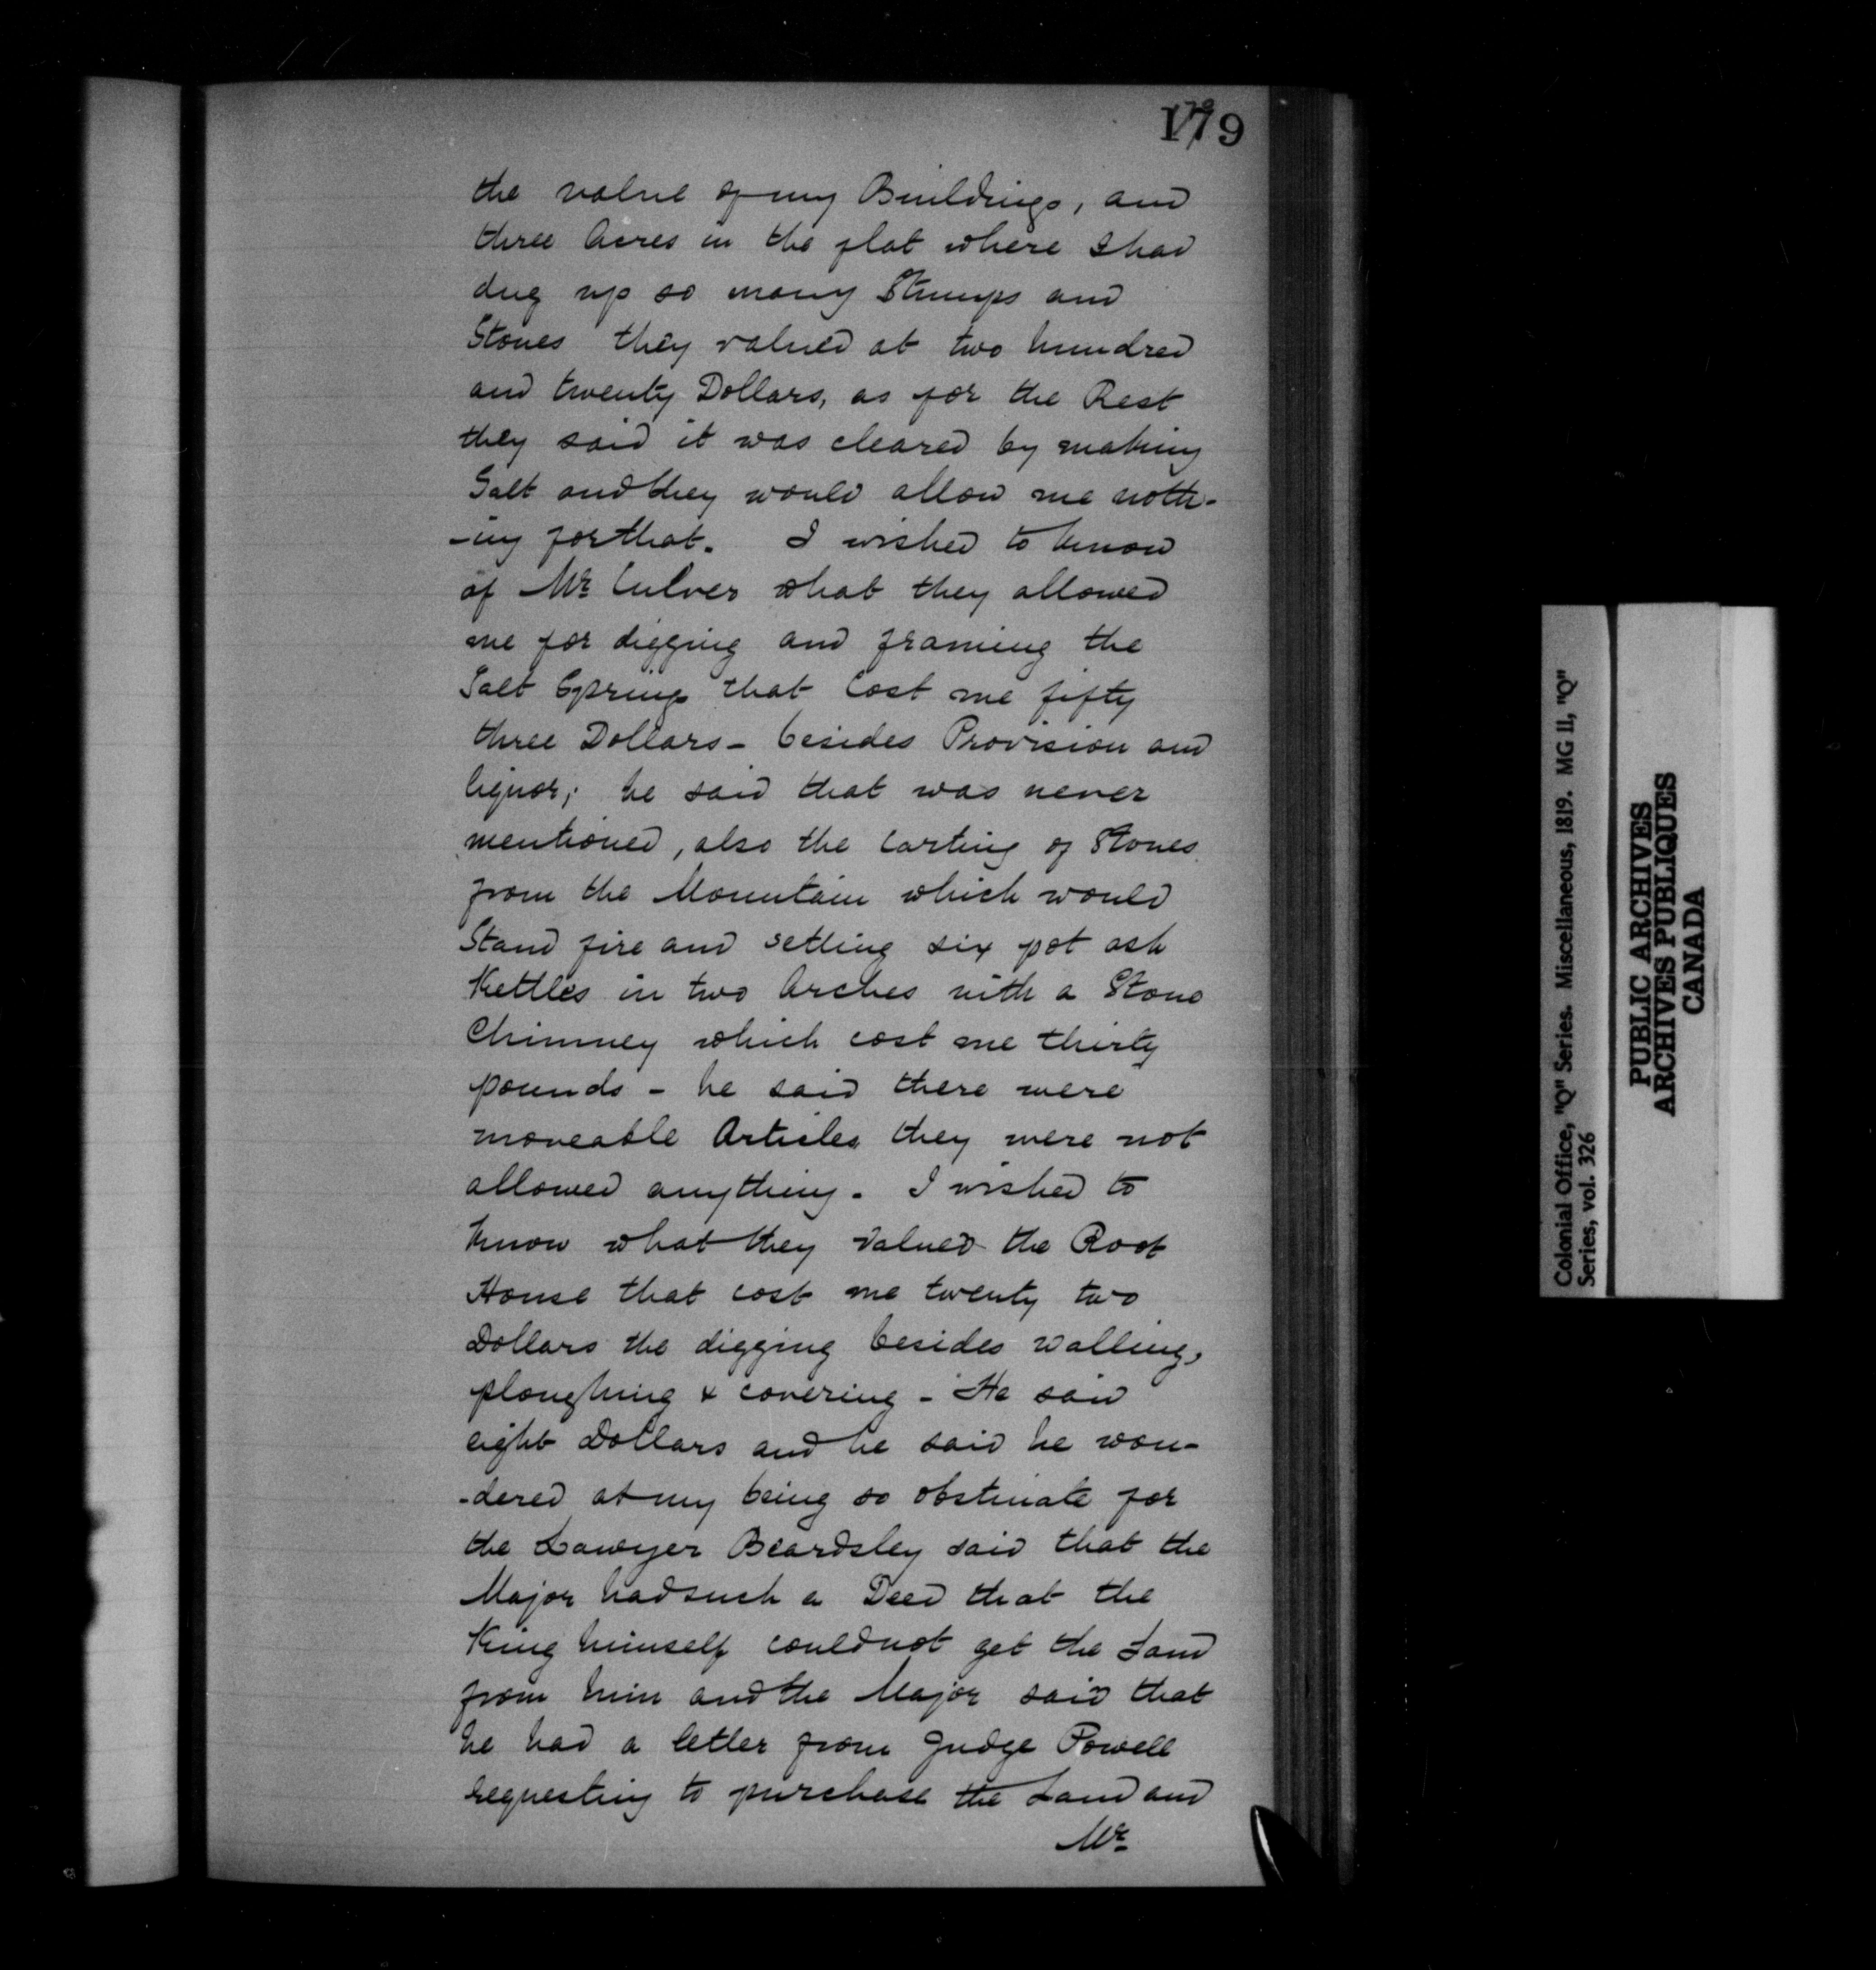 179
the value of my Buildings, and
three Acres in the flat where I had
dug up so many Stumps and
Stones they valued at two hundred
and twenty Dollars, as for the Rest
they said it was cleared by making
Salt and they would allow me noth-
-ing for that. I wished to know
of Mr Culver what they allowed
me for digging and framing the
Salt Spring that cost me fifty
three Dollars - besides Provision and
liquor; he said that was never
mentioned, also the carting of Stones
from the Mountain which would
Stand fire and setting six pot ash
Kettles in two Arches with a Stone
Chimney which cost me thirty
pounds - he said there were
moveable Articles they were not
allowed anything. I wished to
know what they valued the Root
House that cost me twenty two
Dollars the digging besides walling,
ploughing & covering - He said
eight Dollars and he said he won-
-dered at my being so obstinate for
the Lawyer Beardsley said that the
Major had such a Deed that the
King himself could not get the Land
from him and the Major said that
he had a letter from Judge Powell
requesting to purchase the Land and
Mr
Colonial Office, "Q" Series. Miscellaneous, 1819. MG 11, "Q"
Series, vol. 326
PUBLIC ARCHIVES
ARCHIVES PUBLIQUES
CANADA